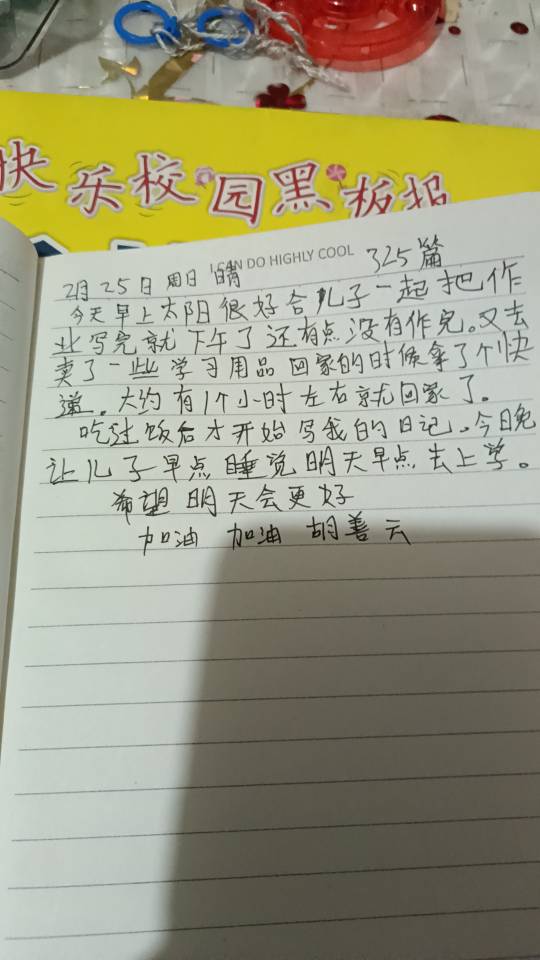 快乐校园黑板报
I CAN DO HIGHLY COOL
325篇
2月25日 周日 晴
今天早上太阳很好合儿子一起把作
业写完就下午了还有点没有作完。又去
卖了一些学习用品回家的时候拿了个快
递。大约有1个小时左右就回家了。
吃过饭后才开始写我的日记。今日晚
让儿子早点睡觉明天早点去上学。
希望明天会更好
加油 加油 胡善云